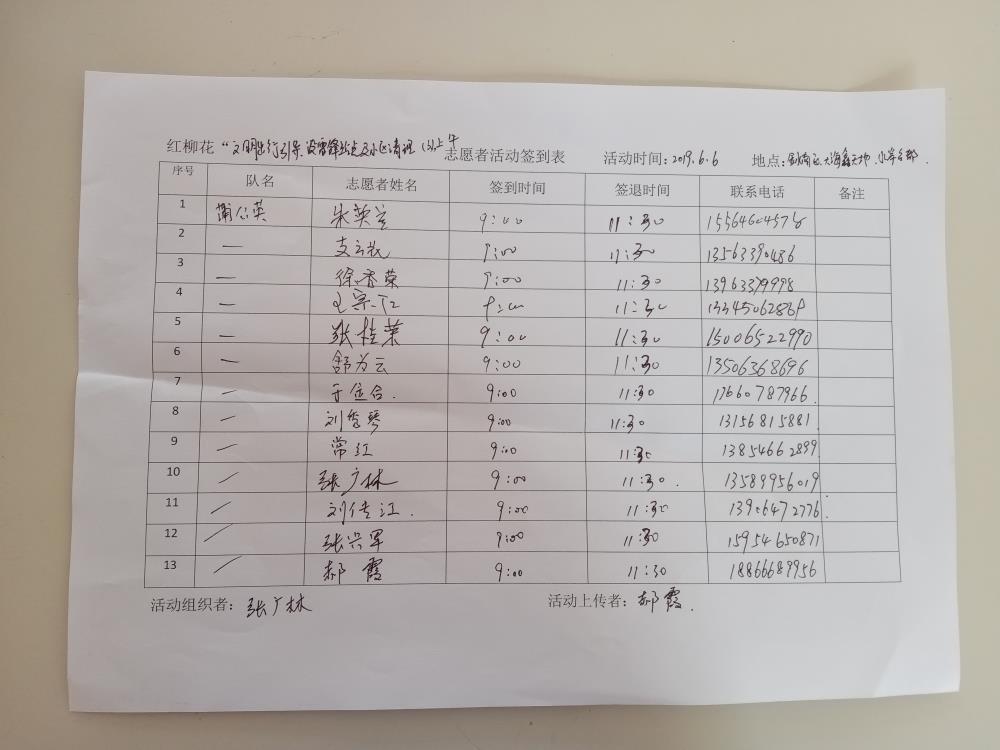 红柳花"文明出行引导、设雷锋站点及小区清理(以上午 志愿者活动签到表 活动时间:2019.6.6 地点:
序号 队名 志愿者姓名 签到时间 签退时间 联系电话 备注
1 蒲公英 朱英兰 9:00 11:30 15564604578
2 — 9:00 11:30 13563390486
3 — 徐香荣 9:00 11:30 13963379998
4 — 9:00 11:30
5 — 张桂荣 9:00 11:30 15006522990
6 — 舒为云 9:00 11:30 13506368696
7 — 于金合. 9:00 11:30 13660787966
8 — 刘秀琴 9:00 11:30 13156815881
9 — 常江 9:00 11:30 13854662899
10 — 张广林 9:00 11:30. 13589956019
11 — 刘传江. 9:00 11:30 13906472776
12 — 张兴军 9:00 11:30 15954650871
13 — 郝霞 9:00 11:30 18866689956
活动组织者:张广林 活动上传者:郝霞.